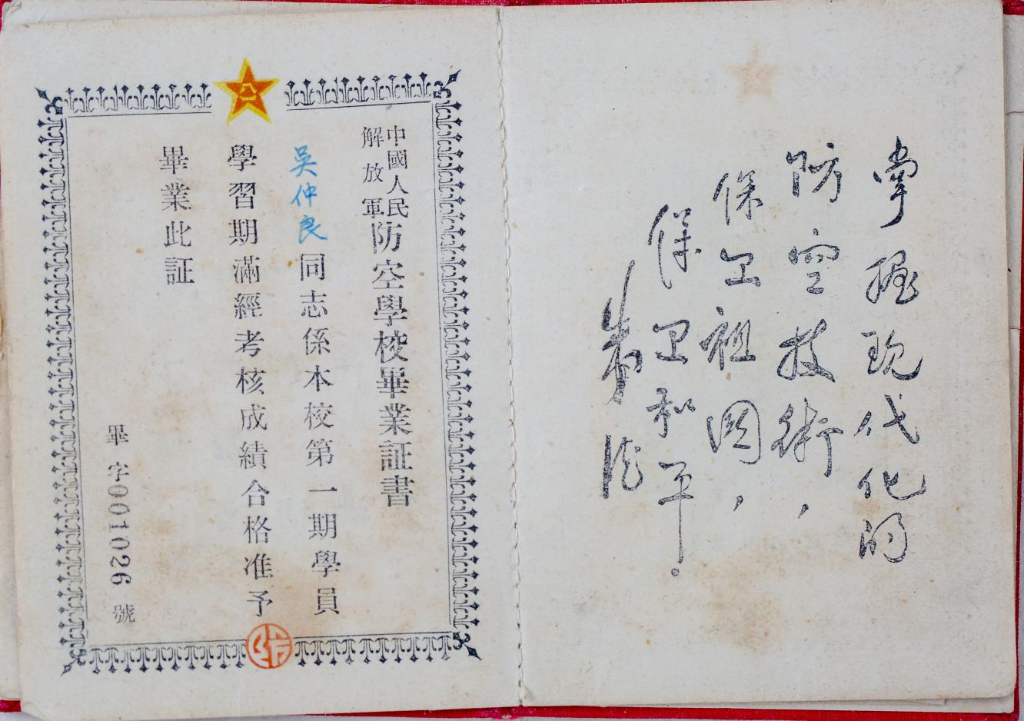 掌握现代化的
防空技術，
保卫祖国，
保卫和平。
朱德
八一
中國人民
解放軍
防空學校畢業証書
吳仲良同志係本校第一期學員
學習期滿經考核成績合格准予
畢業此証
畢字001026號